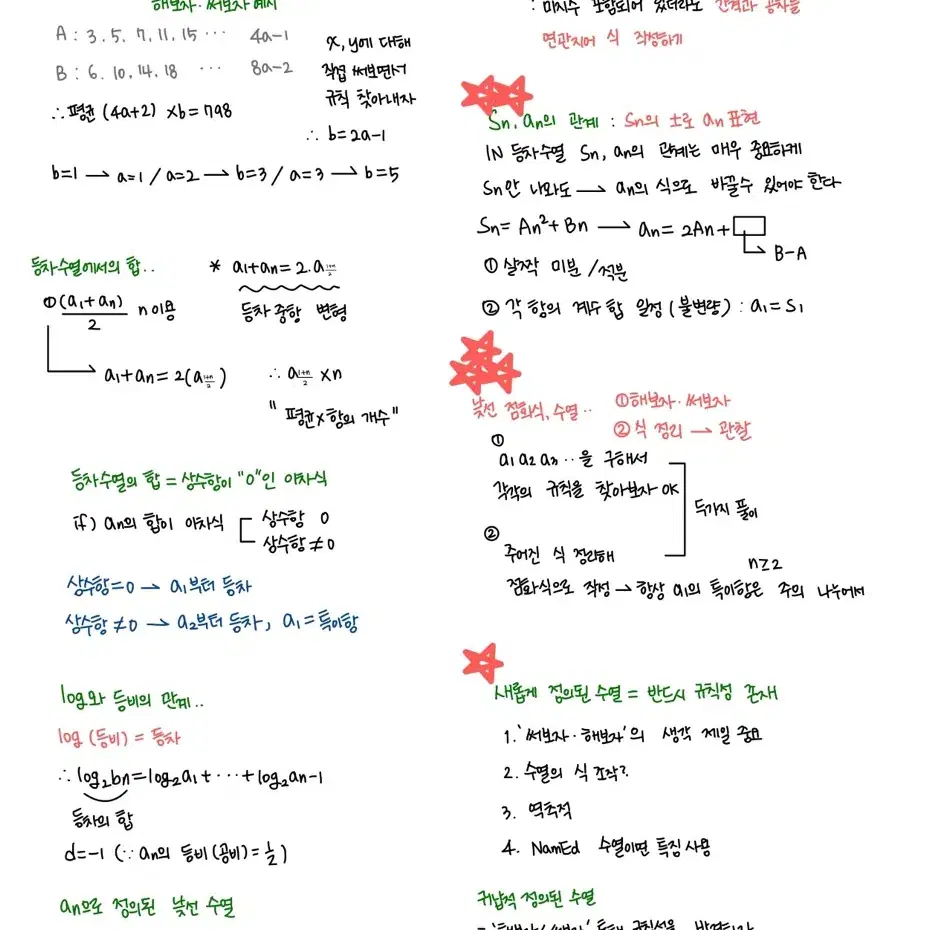 해보자·써보자 예시
A : 3. 5. 7, 11. 15 ··· 4a-1
B : 6. 10. 14. 18 ··· 8a-2
x, y에 대해
직접 써보면서
규칙 찾아내자
∴ 평균 (4a+2) × b = 798
∴ b=2a-1
b=1 → a=1 / a=2 → b=3 / a=3 → b=5
등차수열에서의 합..
* a1+an = 2.a 1+n/2
① (a1+an)/2 n 이용
등차중항 변형
a1+an = 2(a 1+n/2)
∴ a 1+n/2 × n
" 평균×항의 개수"
등차수열의 합 = 상수항이 "0"인 이차식
if) an의 합이 이차식
상수항 0
상수항 ≠ 0
상수항=0 → a1부터 등차
상수항 ≠0 → a2부터 등차, a1 = 특이항
log와 등비의 관계..
log (등비) = 등차
∴ log2bn = log2a1 + ··· + log2an-1
등차의 합
d=-1 (∵ an의 등비(공비) = 1/2)
an으로 정의된 낯선 수열
: 미지수 포함되어 있더라도 간격과 공차를
연관지어 식 작성하기
Sn, an의 관계 : Sn의 식으로 an 표현
IN 등차수열 Sn, an의 관계는 매우 중요하게
Sn안 나와도 → an의 식으로 바꿀수 있어야 한다
Sn= An²+Bn → an= 2An+□
B-A
① 살짝 미분 /적분
② 각 항의 계수 합 일정 (불변량) : a1=S1
낯선 점화식, 수열·· ①해보자·써보자
②식 정리 → 관찰
①
a1 a2 a3 ··을 구해서
각각의 규칙을 찾아보자 OK
두가지 풀이
②
주어진 식 정리해
n≥2
점화식으로 작성 → 항상 a1의 특이항은 주의 나누어서
새롭게 정의된 수열 = 반드시 규칙성 존재
1. '써보자·해보자'의 생각 제일 중요
2. 수열의 식 조작?
3. 역추적
4. NamEd 수열이면 특징 사용
귀납적 정의된 수열